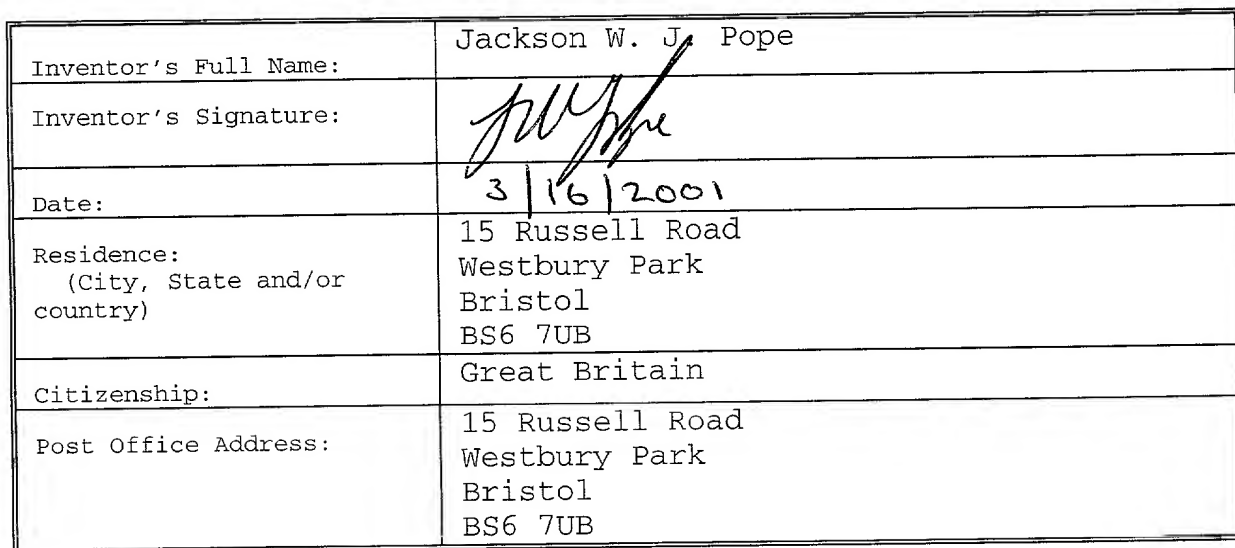 Inventor's Full Name: Jackson W. J. Pope
Inventor's Signature: JWJPope
Date: 3/16/2001
Residence:
(City, State and/or
country)
15 Russell Road
Westbury Park
Bristol
BS6 7UB
Citizenship: Great Britain
Post Office Address:
15 Russell Road
Westbury Park
Bristol
BS6 7UB